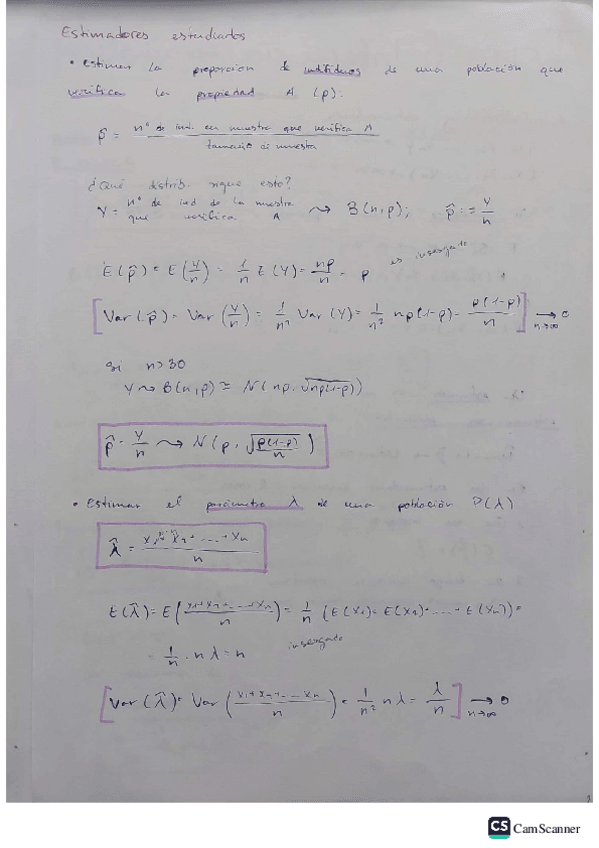 Estimadores estudiados
• Estimar la proporción de individuos de una población que
verifica la propiedad A (p).
p̂ = nº de ind. en muestra que verifica A / tamaño de muestra
¿Qué distrib. sigue esto?
Y = nº de ind de la muestra que verifica A ⇝ B(n,p); p̂ := Y/n
E(p̂) = E(Y/n) = 1/n E(Y) = np/n = p es insesgado
[Var(p̂) = Var(Y/n) = 1/n² Var(Y) = 1/n² np(1-p) = p(1-p)/n] → 0 n→∞
Si n>30
Y ⇝ B(n,p) ≅ N(np, √np(1-p))
p̂ = Y/n ⇝ N(p, √p(1-p)/n)
• Estimar el parámetro λ de una población P(λ)
λ̂ = x₁+x₂+...+xₙ / n
E(λ̂) = E(x₁+x₂+...+xₙ / n) = 1/n (E(x₁)+E(x₂)+...+E(xₙ)) =
= 1/n · nλ = n insesgado
[Var(λ̂) = Var(x₁+x₂+...xₙ / n) = 1/n² nλ = λ/n] → 0 n→∞
CS CamScanner